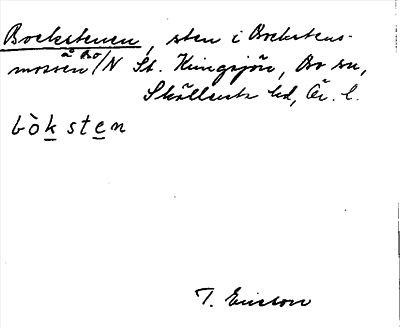 Bockstenen, sten i Bockstens-
å Bo
mossen /N St. Kungsjön, Bo sn,
Skällerud hd, Ör. l.
bòksten
T. Ericson